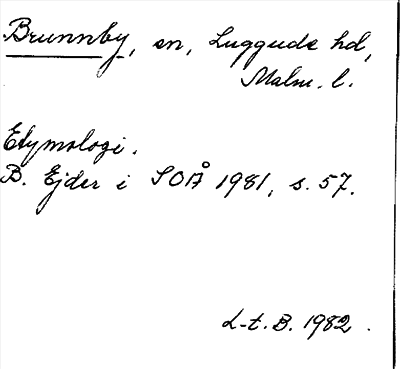 Brunnby, sn, Luggude hd,
Malm. l.
Etymologi.
B. Ejder i SOÅ 1981, s. 57.
L-t. B. 1982.